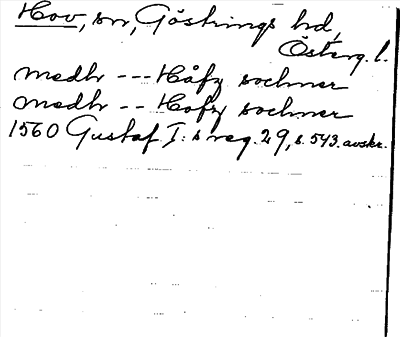 Hov, sn, Göstrings hd,
Österg. l.
medhr --- Håfz sochner
medhr -- Hofz sochner
1560 Gustaf I:s reg. 29, s. 543. avskr.